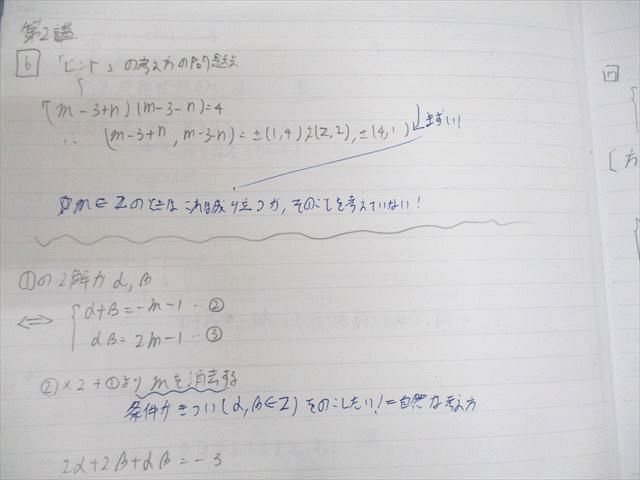 第2講
6 「ヒント」の考え方の問題点
(m-3+n)(m-3-n)=4
∴ (m-3+n, m-3-n)=±(1,4),±(2,2),±(4,1) まずい!
m∈Zのときは これは成り立つが, そのことを考えていない!
①の2解が α, β
⇔ { α+β=-m-1 … ②
αβ=2m-1 … ③
②×2+①より mを消去する
条件がきつい(α,β∈Z)をのこしたい!=自然な考え方
2α+2β+αβ=-3
[方